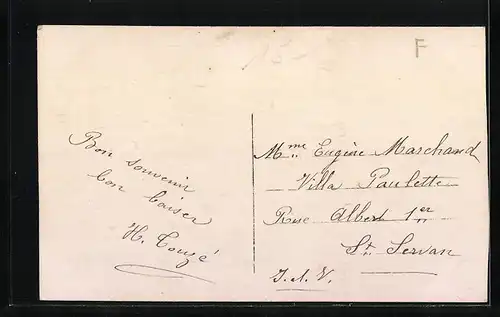 F
Bon souvenir
bon baiser
H. Touzé
Mme Eugène Marchand
Villa Paulette
Rue Albert 1er
St. Servan
I. et V.